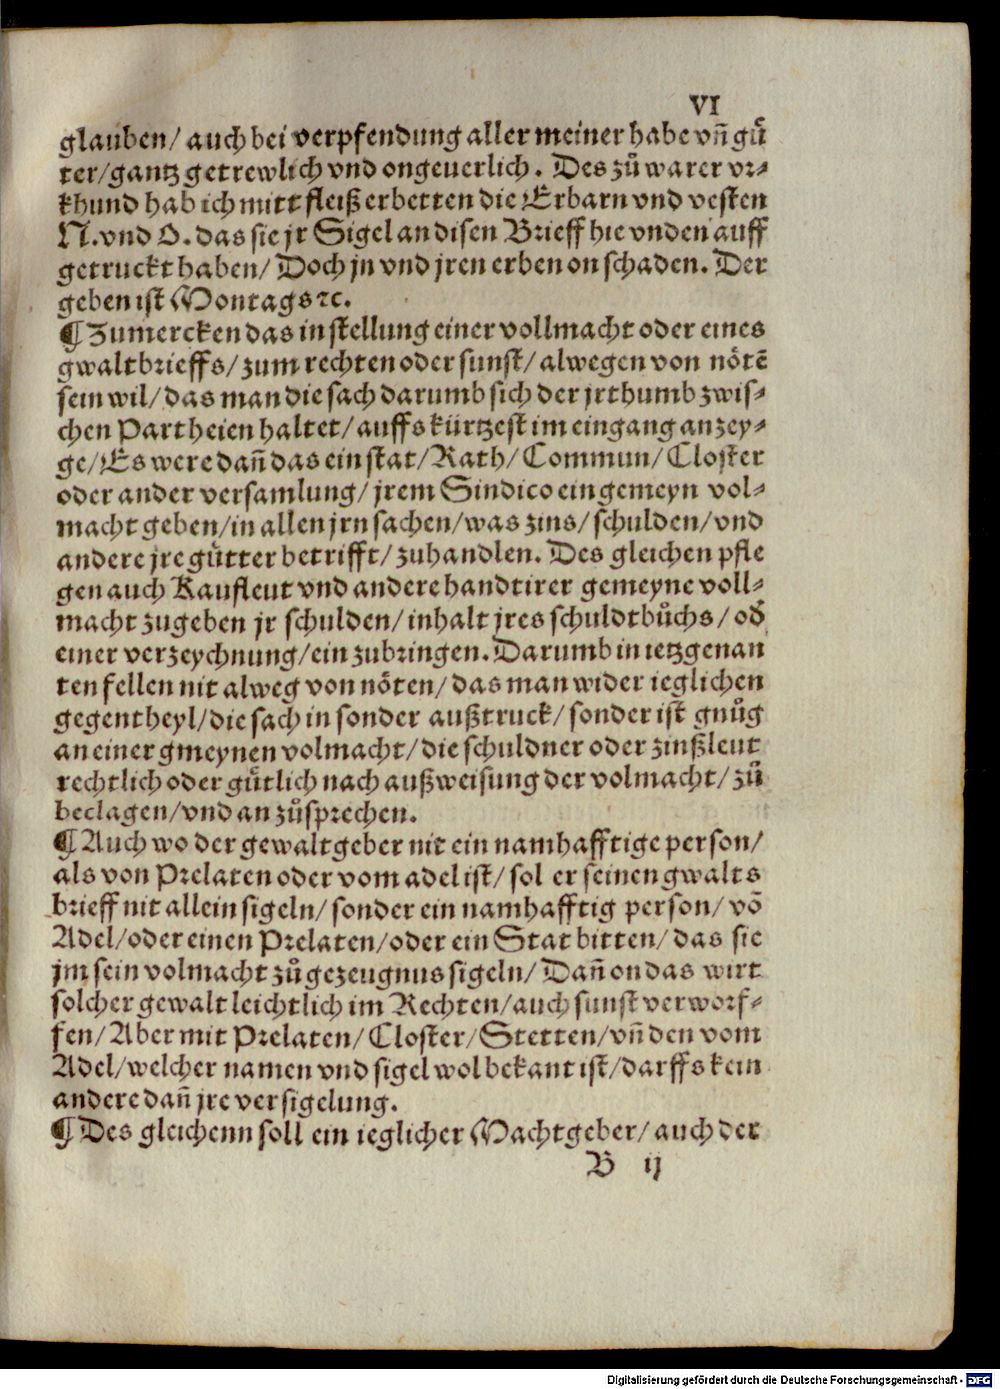 VI
glauben/ auch bei verpfendung aller meiner habe vñ guͤ
ter/gantz getrewlich vnd ongeuerlich. Des zuͦ warer vr⸗
khund hab ich mitt fleiß erbetten die Erbarn vnd vesten
N. vnd O. das sie jr Sigel an disen Brieff hie vnden auff
getruckt haben/ Doch jn vnd jren erben on schaden. Der
geben ist Montags ⁊c.
¶ Zumercken das in stellung einer vollmacht oder eines
gwaltbrieffs/ zum rechten oder sunst/ alwegen von noͤtẽ
sein wil/ das man die sach darumb sich der jrthumb zwis⸗
chen Partheien haltet/ auffs kürtzest im eingang anzey⸗
ge/ Es were dañ das ein stat/ Rath/ Commun/ Closter
oder ander versamlung/ jrem Sindico ein gemeyn vol⸗
macht geben/ in allen jrn sachen/ was zins/ schulden/ vnd
andere jre guͤtter betrifft/ zuhandlen. Des gleichen pfle
gen auch Kaufleut vnd andere handtirer gemeyne voll⸗
macht zugeben jr schulden/ inhalt jres schuldtbuͦchs/ od̕
einer verzeychnung/ ein zubringen. Darumb in ietzgenan
ten fellen nit alweg von noͤten/ das man wider ieglichen
gegentheyl/ die sach in sonder außtruck/ sonder ist gnuͦg
an einer gmeynen volmacht/ die schuldner oder zinßleut
rechtlich oder guͤtlich nach außweisung der volmacht/ zuͦ
beclagen/ vnd an zuͦsprechen.
¶ Auch wo der gewaltgeber nit ein namhafftige person/
als von Prelaten oder vom adel ist/ sol er seinen gwalts
brieff nit allein sigeln/ sonder ein namhafftig person/ võ
Adel/ oder einen Prelaten/ oder ein Stat bitten/ das sie
jm sein volmacht zuͦ gezeugnus sigeln/ Dañ on das wirt
solcher gewalt leichtlich im Rechten/ auch sunst verworf⸗
fen/ Aber mit Prelaten/ Closter/ Stetten/ vñ den vom
Adel/ welcher namen vnd sigel wol bekant ist/ darffs kein
andere dañ jre versigelung.
¶ Des gleichenn soll ein ieglicher Machtgeber/ auch der
B ij
Digitalisierung gefördert durch die Deutsche Forschungsgemeinschaft - DFG